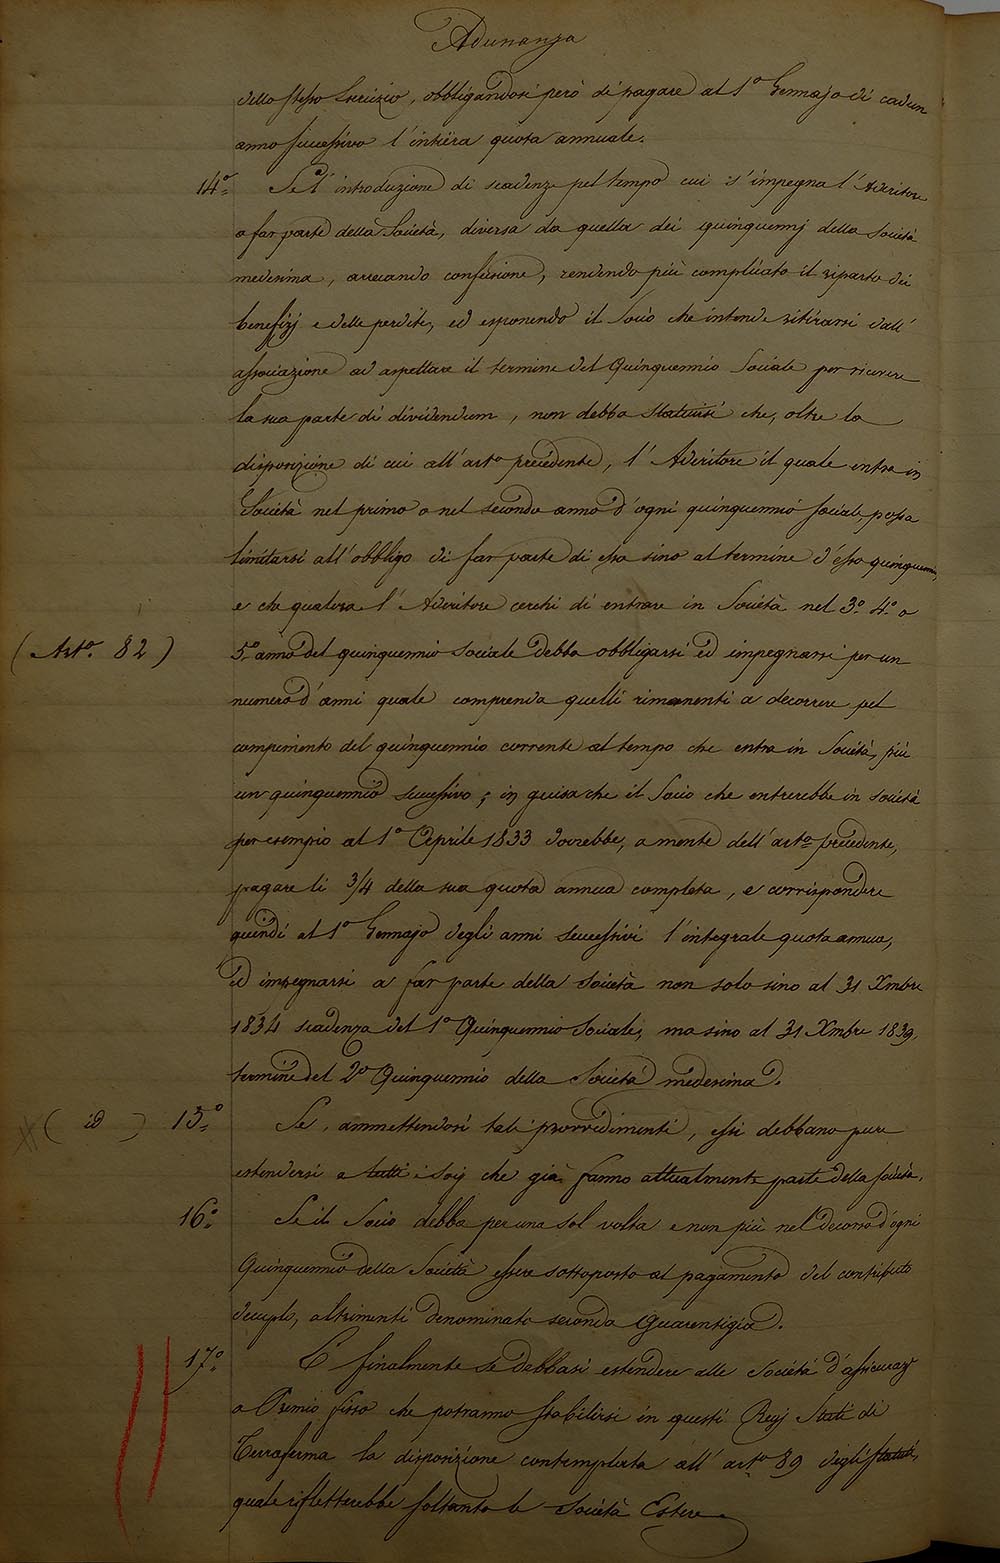 Adunanza
dello stesso Esercizio, obbligandosi però di pagare al 1º Gennajo di cadun
anno successivo l'intiera quota annuale.
14º Se l'introduzione di scadenze pel tempo cui s'impegna l'Aderitore
a far parte della Società, diversa da quella dei quinquennj della Società
medesima, arrecando confusione, rendendo più complicato il riparto dei
benefizj e delle perdite, ed esponendo il Socio che intende ritirarsi dall'
associazione ad aspettare il termine del Quinquennio Sociale per ricevere
la sua parte di dividendum, non debba statuirsi che, oltre la
disposizione di cui all'artº precedente, l'Aderitore il quale entra in
Società nel primo o nel secondo anno d'ogni quinquennio sociale, possa
limitarsi all'obbligo di far parte di essa sino al termine d'esso quinquennio,
e che qualora l'Aderitore cerchi di entrare in Società nel 3º 4º o
(Artº 82) 5º anno del quinquennio sociale debba obbligarsi ed impegnarsi per un
numero d'anni quale comprenda quelli rimanenti a decorrere pel
compimento del quinquennio corrente al tempo che entra in Società, più
un quinquennio successivo; in guisa che il Socio che entrerebbe in società
per esempio al 1º Aprile 1833 dovrebbe, a mente dell'artº precedente,
pagare li 3/4 della sua quota annua completa, e corrispondere
quindi al 1º Gennajo degli anni successivi l'integrale quota annua,
ed impegnarsi a far parte della società non solo sino al 31 Xmbre
1834 scadenza del 1º Quinquennio Sociale, ma sino al 31 Xmbre 1839,
termine del 2º Quinquennio della Società medesima.
(id) 15º Se, ammettendosi tali provvedimenti, essi debbano pure
estendersi a tutti i Socj che già fanno attualmente parte della società.
16º Se il Socio debba per una sol volta e non più nel decorso d'ogni
Quinquennio della Società essere sottoposto al pagamento del contributo
decuplo, altrimenti denominato seconda Guarentigia.
17º E finalmente se debbasi estendere alle Società d'assicuraz
a Premio fisso che potranno stabilirsi in questi Regj Stati di
Terraferma la disposizione contemplata all'artº 89 degli statuti,
quale rifletterebbe soltanto le Società Estere